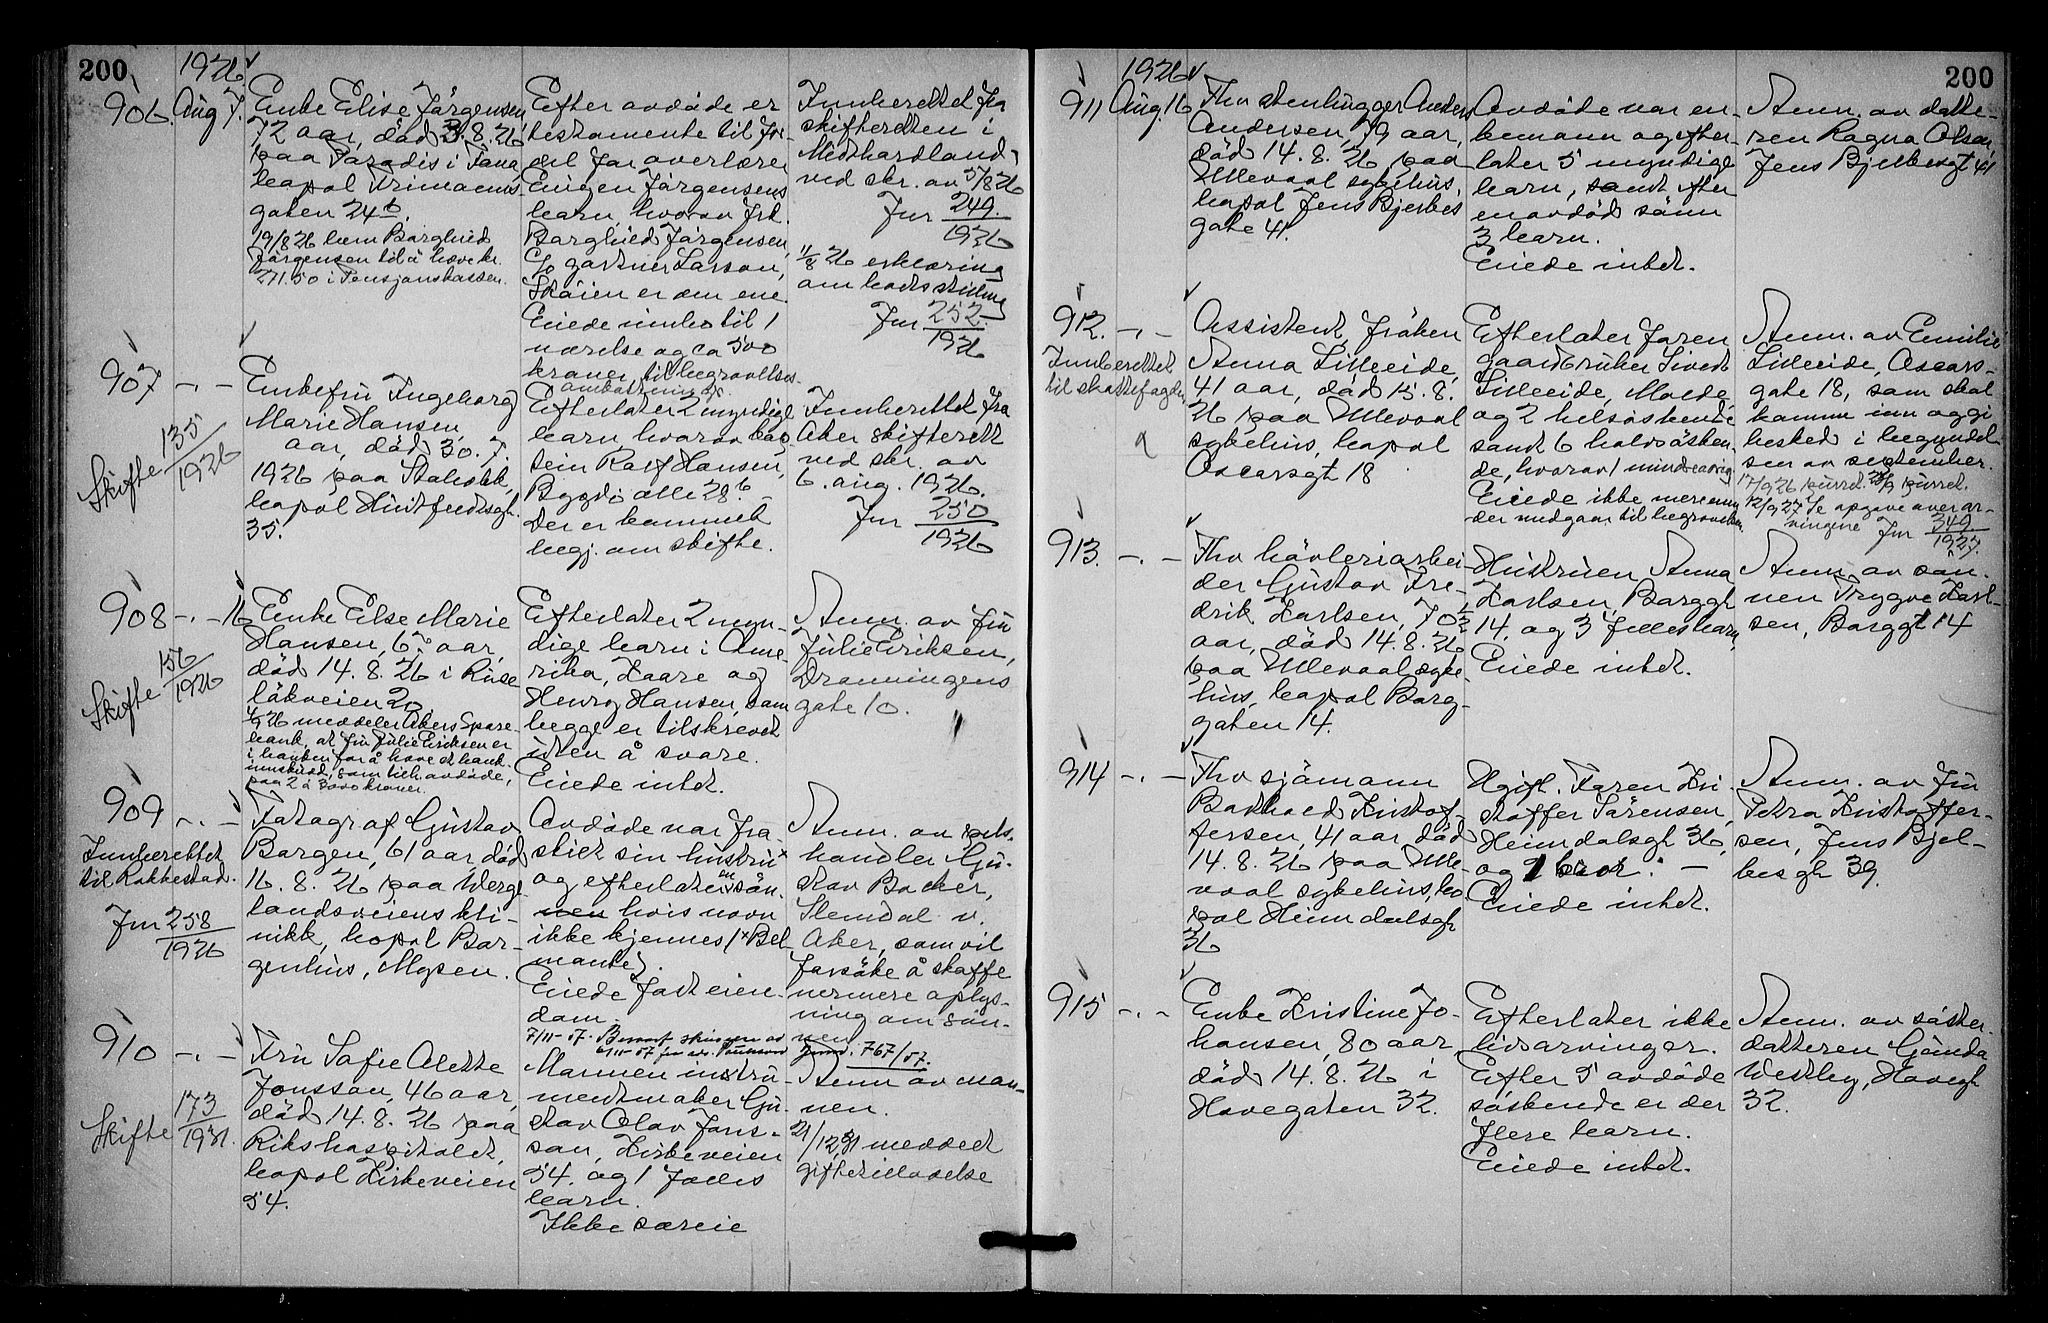 200
1926
906. Aug 7.
Enke Elise Jörgensen
72 aar, död 3.8.26
paa Paradis i Fana
bopæl
gaten 24 b.
19/8 26 kom Borghild
Jörgensen til å hæve kr.
271.50 i Pensjonskassen.
Efter avdöde er
testamente til for-
del for overlærer
Eugen Jörgensens
barn, hvorav frk.
Borghild Jörgensen,
c/o gartner Larsson,
Skøien er den ene.
Eiede innbo til 1
værelse og ca 500
kroner til begravelses-
omkostninger.
Innberettet fra
skifteretten i
Midthordland
ved skr. av 5/8 26
Jnr 249
1926
11/8 26 erklæring
om bodsstilling
Jnr 252
1926
907 -.-
Skifte 135
1926
Enkefru Ingeborg
Marie Hansen
aar, död 30.7.
1926 paa Stabekk,
bopæl Huitfeldtsgt.
35.
Efterlater 2 myndige
barn hvorav kap-
tein Rolf Hansen,
Bygdö alle 28 b.
Der er kommet
begj. om skifte.
Innberettet fra
Aker skifterett
ved skr. av
6. aug. 1926.
Jnr 250
1926
908 -.- 16
Skifte 156
1926
Enke Else Marie
Hansen, 67 aar
död 14.8.26 i Ruse-
lökveien 20
26 meddeler Akers Spare-
bank, at fru Julie Eriksen er
i banken for å hæve et bank-
innskudd, som tilh. avdöde,
paa 2 à 3000 kroner.
Efterlater 2 myn-
dige barn i Ame-
rika, Kaare og
Henry Hansen, som
begge er tilskrevet
uten å svare.
Eiede intet.
Anm. av fru
Julie Eriksen,
Dronningens
gate 10.
909 -.-
Innberettet
til Rakkestad.
Jnr 258
1926
Fotograf Gustav
Borgen, 61 aar död
16.8.26 paa Werge-
landsveiens kli-
nikk, bopæl Bor-
genhus, Mysen.
Avdöde var fra-
skilt sin hustru x
og efterlater en sön
nen hvis navn
ikke kjennes (x Bel-
monte).
Eiede fast eien-
dom.
7/11-57.
Anm. av pels-
handler Gu-
stav Backer,
Slemdal v.
Aker, som vil
forsöke å skaffe
nermere oplys-
ning om sön-
nen
767/57.
910 -.-
Skifte 173
1931.
Fru Sofie Alette
Jonsson, 46 aar,
död 14.8.26 paa
Rikshospitalet,
bopæl Kirkeveien
54.
Mannen instru-
mentmaker Gu-
stav Olav Jons-
son, Kirkeveien
54. og 1 fælles
barn.
Ikke særeie
Anm av man-
nen.
21/12 31 meddelt
giftetilladelse
200
1926
911 Aug. 16
Fhv stenhugger Anders
Andersen, 79 aar,
död 14.8.26 paa
Ullevaal sykehus,
bopæl Jens Bjelkes
gate 41.
Avdöde var en-
kemann og efter-
later 5 myndige
barn, samt efter
en avdöd sönn
3 barn.
Eiede intet.
Anm. av datte-
ren Ragna Olsen,
Jens Bjelkesgt 41
912. -.-
Innberettet
til skattefogden
Assistent, fröken
Anna Lilleeide,
41 aar, död 15.8.
26 paa Ullevaal
sykehus, bopæl
Oscarsgt 18
Efterlater faren
gaardbruker Sivert
Lilleeide, Molde,
og 2 helsöskende
samt 6 halvsösken-
de, hvorav 1 mindreaarig.
Eiede ikke mere enn
der medgaar til begravelsen.
Anm. av Emilie
Lilleeide, Oscars-
gate 18, som skal
komme inn og gi
beskjed i begyndel-
sen av september.
17/9 26 purret. purret.
12/9 27 Se opgave over ar-
vingene Jnr 349
1927.
913. -.-
Fhv hövleriarbei-
der Gustav Fre-
drik Karlsen, 70 1/2
aar, död 14.8.26
paa Ullevaal syke-
hus, bopæl Borg-
gaten 14.
Hustruen Anna
Karlsen, Borggt
14. og 3 fellesbarn,
Eiede intet.
Anm. av sön-
nen Trygve Karl-
sen, Borggt 14
914 -.-
Fhv sjömann
Kristof-
fersen, 41 aar, död
14.8.26 paa Ulle-
vaal sykehus, bo-
pæl Heimdalsgt
36
Ugift. Faren Kri-
stoffer Sörensen,
Heimdalsgt 36,
og 1 bror. -
Eiede intet.
Anm. av fru
Petra Kristoffer-
sen, Jens Bjel-
kesgt 39.
915 -.-
Enke Kristine Jo-
hansen, 80 aar,
död 14.8.26 i
Hovegaten 32.
Efterlater ikke
livsarvinger.
Efter 5 avdöde
söskende er der
flere barn.
Eiede intet.
Anm. av söster-
datteren Gunda
Westley, Hovegt
32.